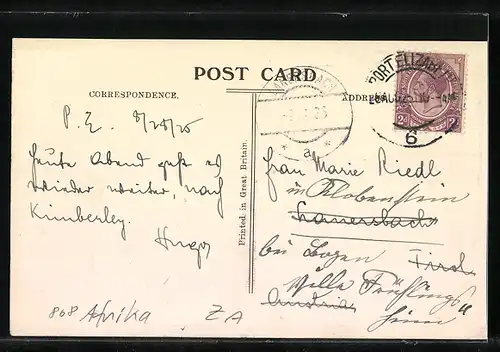 POST CARD
CORRESPONDENCE.
ADDRESS
PORT ELIZABETH
6
2d 2d
Printed in Great Britain.
P. E. 8/28/25
heute Abend geht es
wieder weiter, nach
Kimberley.
Hugo
Frau Marie Riedl
in Klobenstein
Lanersbach
bei Bozen Tirol
Villa Frühlings
heim"
Austria
808 Afrika ZA